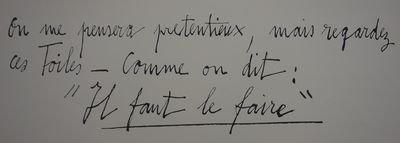 on me pensera pretentieux, mais regardez
ces Toiles - Comme on dit :
"Il faut le faire"